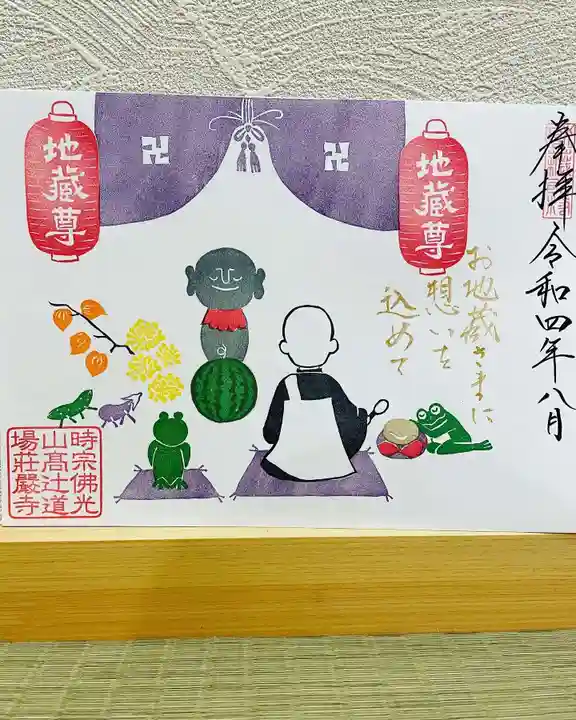 奉拝 令和四年八月
地蔵尊
地蔵尊
お地蔵さまに
想いを
込めて
時宗佛光
山髙辻道
場荘嚴寺